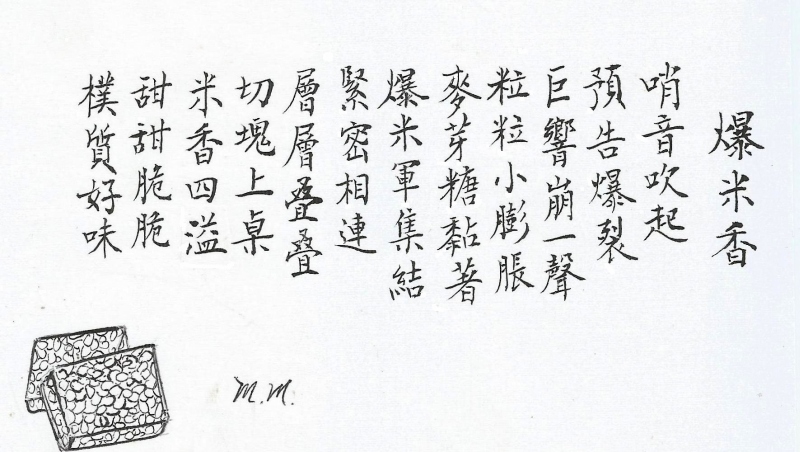 爆米香
哨音吹起
預告爆裂
巨響崩一聲
粒粒小膨脹
麥芽糖黏著
爆米軍集結
緊密相連
層層疊疊
切塊上桌
米香四溢
甜甜脆脆
樸質好味
M.M.